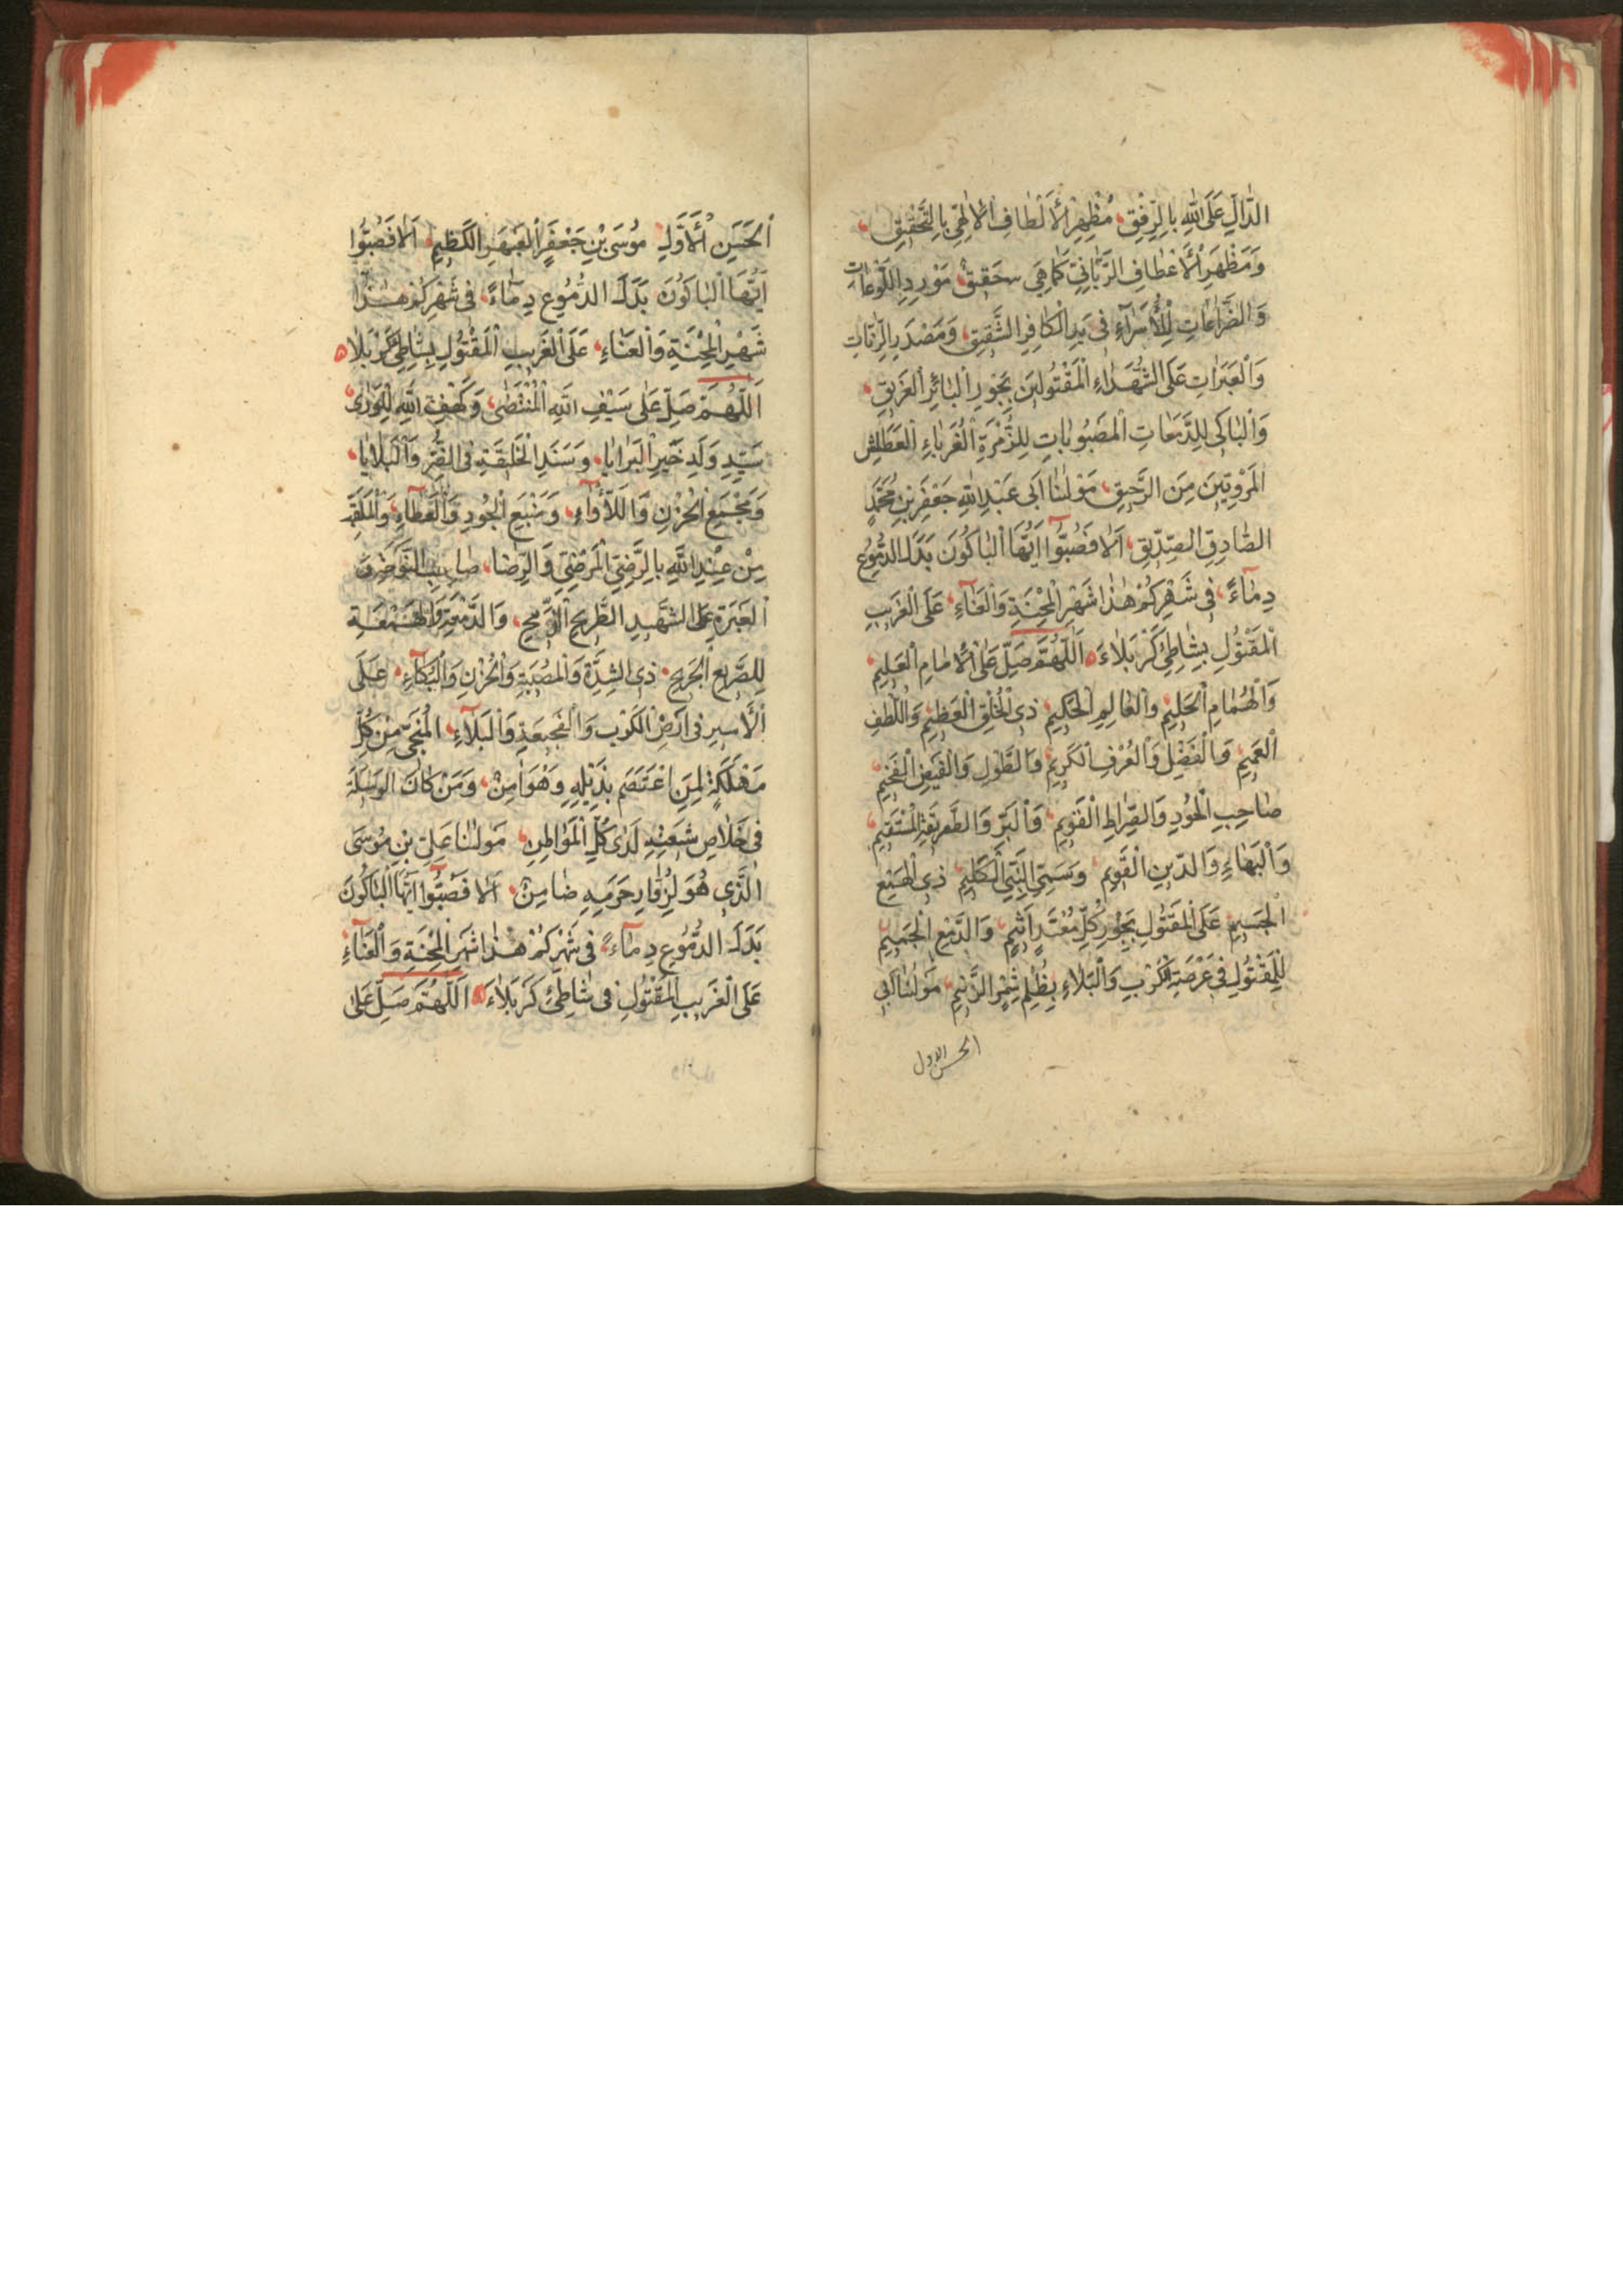 الدَّالِّ عَلَى اللّٰهِ بِالرِّفْقِ، مُظْهِرِ الْأَلْطَافِ الْاِلٰهِيِّ بِالتَّحْقِيقِ،
وَمَظْهَرِ الْأَعْطَافِ الرَّبَّانِيِّ كَمَا هِيَ حَقِيقٌ، مَوْرِدِ اللَّوْعَاتِ
وَالضَّرَاعَاتِ لِلْأُسَرَآءِ فِي يَدِ الْكَافِرِ الشَّقِيقِ، وَمَصْدَرِ الرَّنَّاتِ
وَالْعَبَرَاتِ عَلَى الشُّهَدَاءِ الْمَقْتُولِينَ بِجَوْرِ الْبَائِرِ الْغَرِيقِ،
وَالْبَاكِي لِلدَّمَعَاتِ الْمَصْبُوبَاتِ لِلزُّمْرَةِ الْغُرَبَاءِ الْعَطَاشِ
الْمَرْوِيِّينَ مِنَ الرَّحِيقِ، مَوْلٰنَا اَبِي عَبْدِ اللّٰهِ جَعْفَرِ بْنِ مُحَمَّدٍ
الصَّادِقِ الصِّدِّيقِ، اَلَا فَصُبُّوا اَيُّهَا الْبَاكُونَ بَدَلَ الدُّمُوعِ
دِمَآءً، فِي شَهْرِكُمْ هٰذَا شَهْرِ الْمِحْنَةِ وَالْعَنَآءِ، عَلَى الْغَرِيبِ
الْمَقْتُولِ بِشَاطِئِ كَرْبَلَاءَ ه اَللّٰهُمَّ صَلِّ عَلَى الْاِمَامِ الْعَلِيمِ،
وَالْهُمَامِ الْحَلِيمِ وَالْعَالِمِ الْحَكِيمِ، ذِي الْخُلُقِ الْعَظِيمِ، وَاللُّطْفِ
الْعَمِيمِ، وَالْفَضْلِ وَالْعُرْفِ الْكَرِيمِ، وَالطَّوْلِ وَالْفَيْضِ الْفَخِيمِ،
صَاحِبِ الْجُودِ وَالصِّرَاطِ الْقَوِيمِ، وَالْبَرِّ وَالطَّرِيقَةِ الْمُسْتَقِيمِ،
وَالْبَهَاءِ وَالدِّينِ الْقَوِيمِ، وَسَمِيِّ النَّبِيِّ الْكَلِيمِ، ذِي الْهَيْعِ
الْجَسِيمِ عَلَى الْمَقْتُولِ بِجَوْرِ كُلِّ مُعْتَدٍ اَثِيمٍ، وَالدَّمْعِ الْجَمِيمِ
لِلْمَقْتُولِ فِي عَرْصَةِ الْكَرْبِ وَالْبَلَاءِ بِظُلْمِ شِمْرِ الزَّنِيمِ، مَوْلٰنَا اَبِي
الحسن الاول
الْحَسَنِ الْأَوَّلِ مُوسَى بْنِ جَعْفَرٍ الْعَبْهَرِ الْكَظِيمِ، اَلَا فَصُبُّوا
اَيُّهَا الْبَاكُونَ بَدَلَ الدُّمُوعِ دِمَآءً، فِي شَهْرِكُمْ هٰذَا
شَهْرِ الْمِحْنَةِ وَالْعَنَاءِ، عَلَى الْغَرِيبِ الْمَقْتُولِ بِشَاطِئِ كَرْبَلَا ه
اَللّٰهُمَّ صَلِّ عَلَى سَيْفِ اللّٰهِ الْمُنْتَضٰى، وَكَهْفِ اللّٰهِ لِلْوَرٰى،
سَيِّدِ وَلَدِ خَيْرِ الْبَرَايَا، وَسَنَدِ الْخَلِيقَةِ فِي الضُّرِّ وَالْبَلَايَا،
وَمَجْمَعِ الْحُزْنِ وَاللَّأْوَآءِ، وَمَنْبَعِ الْجُودِ وَالْعَطَاءِ، وَالْمُلَقَّبِ
مِنْ عِنْدِ اللّٰهِ بِالرَّضِيِّ الْمَرْضِيِّ وَالرِّضَا،
الْعَبَرَةِ عَلَى الشَّهِيدِ الطَّرِيحِ، وَالدَّمْعَةِ
لِلصَّرِيعِ الْجَرِيحِ، ذِي الشِّدَّةِ وَالْمُصِيبَةِ وَالْحُزْنِ وَالْبُكَآءِ، عَلَى
الْأَسِيرِ فِي اَرْضِ الْكَرْبِ وَالْفَجِيعَةِ وَالْبَلَآءِ، الْمُنْجِي مِنْ كُلِّ
مَهْلَكَةٍ لِمَنِ اعْتَصَمَ بِذَيْلِهِ وَهُوَ اٰمِنٌ، وَمَنْ كَانَ الْوَسِيلَةَ
فِي خَلَاصِ شِيعَتِهِ لَدٰى كُلِّ الْمَوَاطِنِ، مَوْلٰنَا عَلِيِّ بْنِ مُوسَى
الَّذِي هُوَ لِزُوَّارِ حَرَمِهِ ضَامِنٌ، اَلَا فَصُبُّوا اَيُّهَا الْبَاكُونَ
بَدَلَ الدُّمُوعِ دِمَآءً، فِي شَهْرِكُمْ هٰذَا شَهْرِ الْمِحْنَةِ وَالْعَنَآءِ،
عَلَى الْغَرِيبِ الْمَقْتُولِ فِي شَاطِئِ كَرْبَلَاءَ ه اَللّٰهُمَّ صَلِّ عَلَى